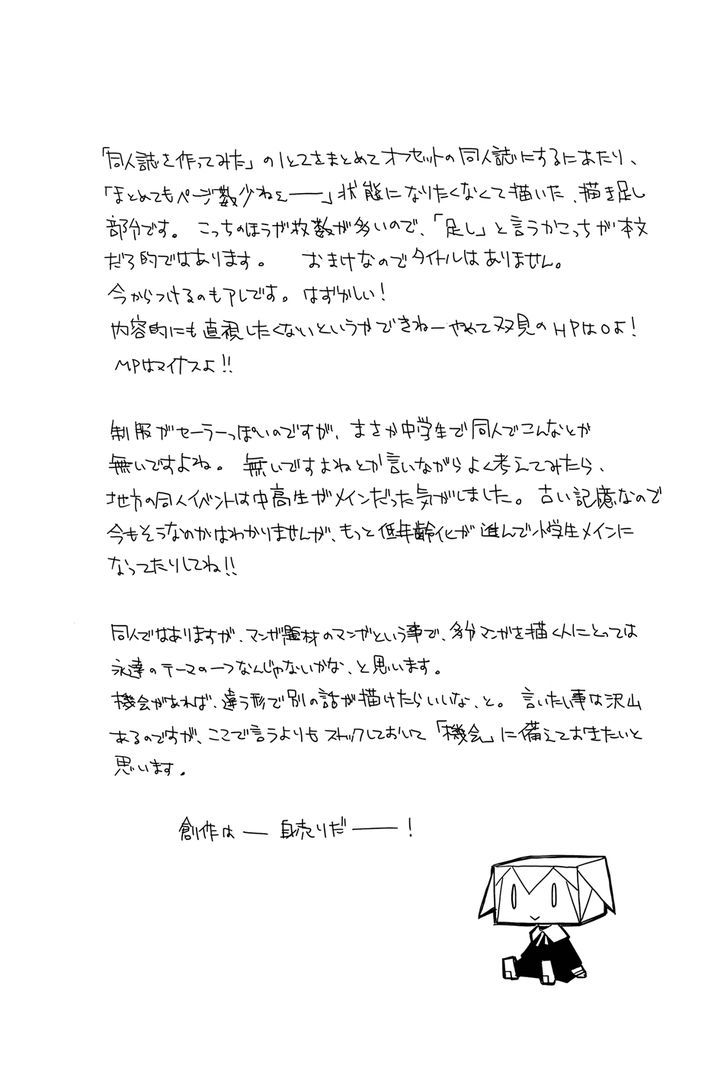 「同人誌を作ってみた」の1と2をまとめてオフセットの同人誌にするにあたり、
「まとめてもページ数少ねぇ――」状態になりたくなくて描いた、描き足し
部分です。 こっちのほうが枚数が多いので、「足し」と言うかこっちが本文
だろ的ではあります。 おまけなのでタイトルはありません。
今からつけるのもアレです。はずかしい！
内容的にも直視したくないというかできねーやめて双見のHPは0よ！
MPはマイナスよ!!
制服がセーラーっぽいのですが、まさか中学生で同人でこんなとか
無いですよね。 無いですよねとか言いながらよく考えてみたら、
地方の同人イベントは中高生がメインだった気がしました。古い記憶なので
今もそうなのかはわかりませんが、もっと低年齢化が進んで小学生メインに
なってたりしてね!!
同人ではありますが、マンガ題材のマンガという事で、多分マンガを描く人にとっては
永遠のテーマの一つなんじゃないかな、と思います。
機会があれば、違う形で別の話が描けたらいいな、と。言いたい事は沢山
あるのですが、ここで言うよりもストックしておいて「機会」に備えておきたいと
思います。
創作は― 身売りだ――！